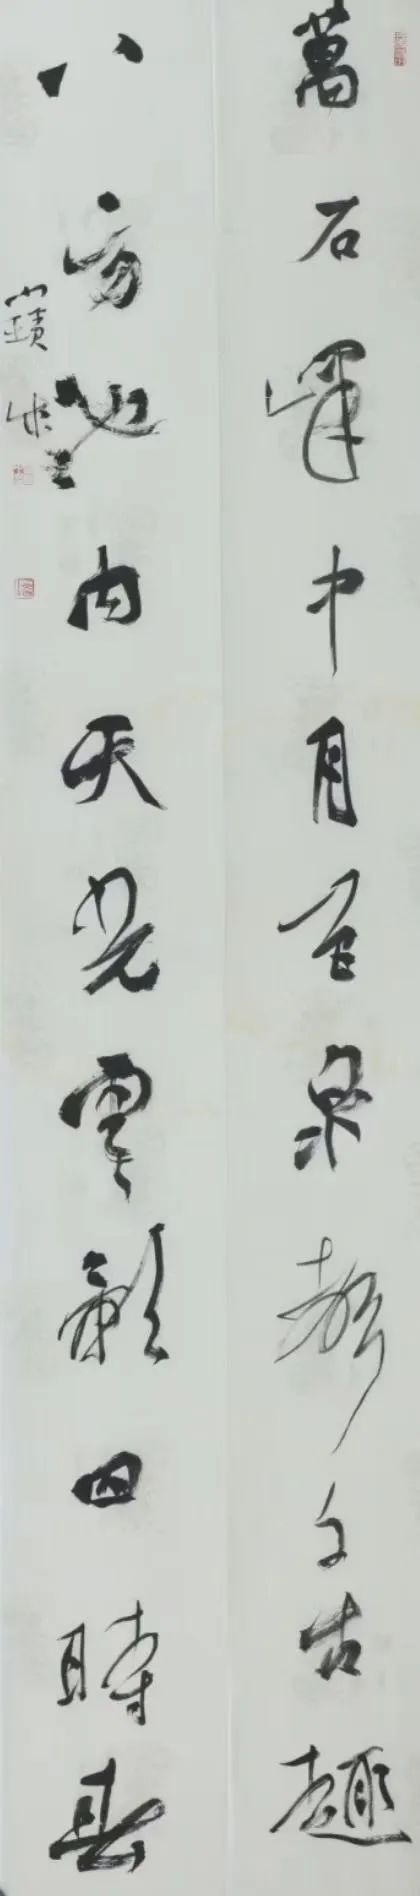 萬石峰中月色泉聲千古趣
八方池內天光雲影四時春